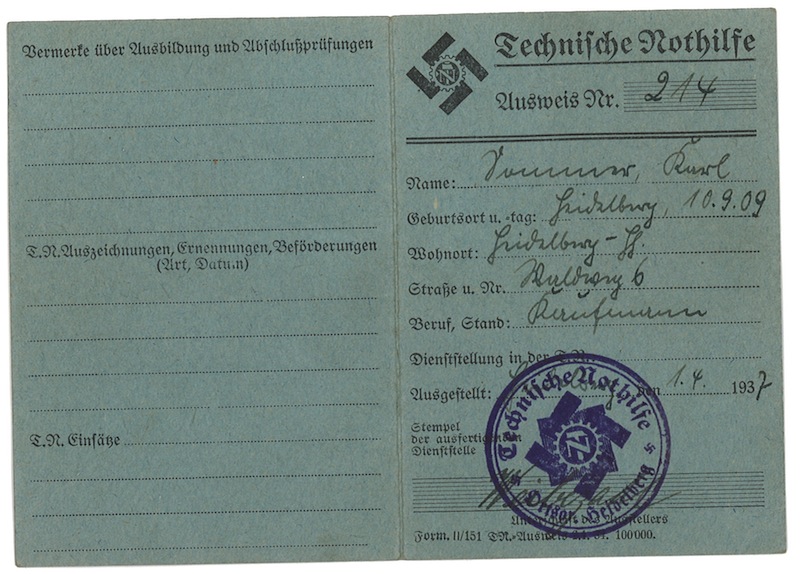 Vermerke über Ausbildung und Abschlußprüfungen
T.N. Auszeichnungen, Ernennungen, Beförderungen
(Art, Datum)
T.N. Einsätze
Technische Nothilfe
Ausweis Nr. 214
Name: Sommer, Karl
Geburtsort u. -tag: Heidelberg, 10.9.09
Wohnort: Heidelberg-
Straße u. Nr. Waldweg 6
Beruf, Stand: Kaufmann
Dienststellung in der T.N.
Ausgestellt: Heidelberg, den 1.4. 1937
Stempel
der ausfertigenden
Dienststelle
Technische Nothilfe
Ortsgr. Heidelberg
Unterschrift des Ausstellers
Form. II/151 TN-Ausweis 100000.